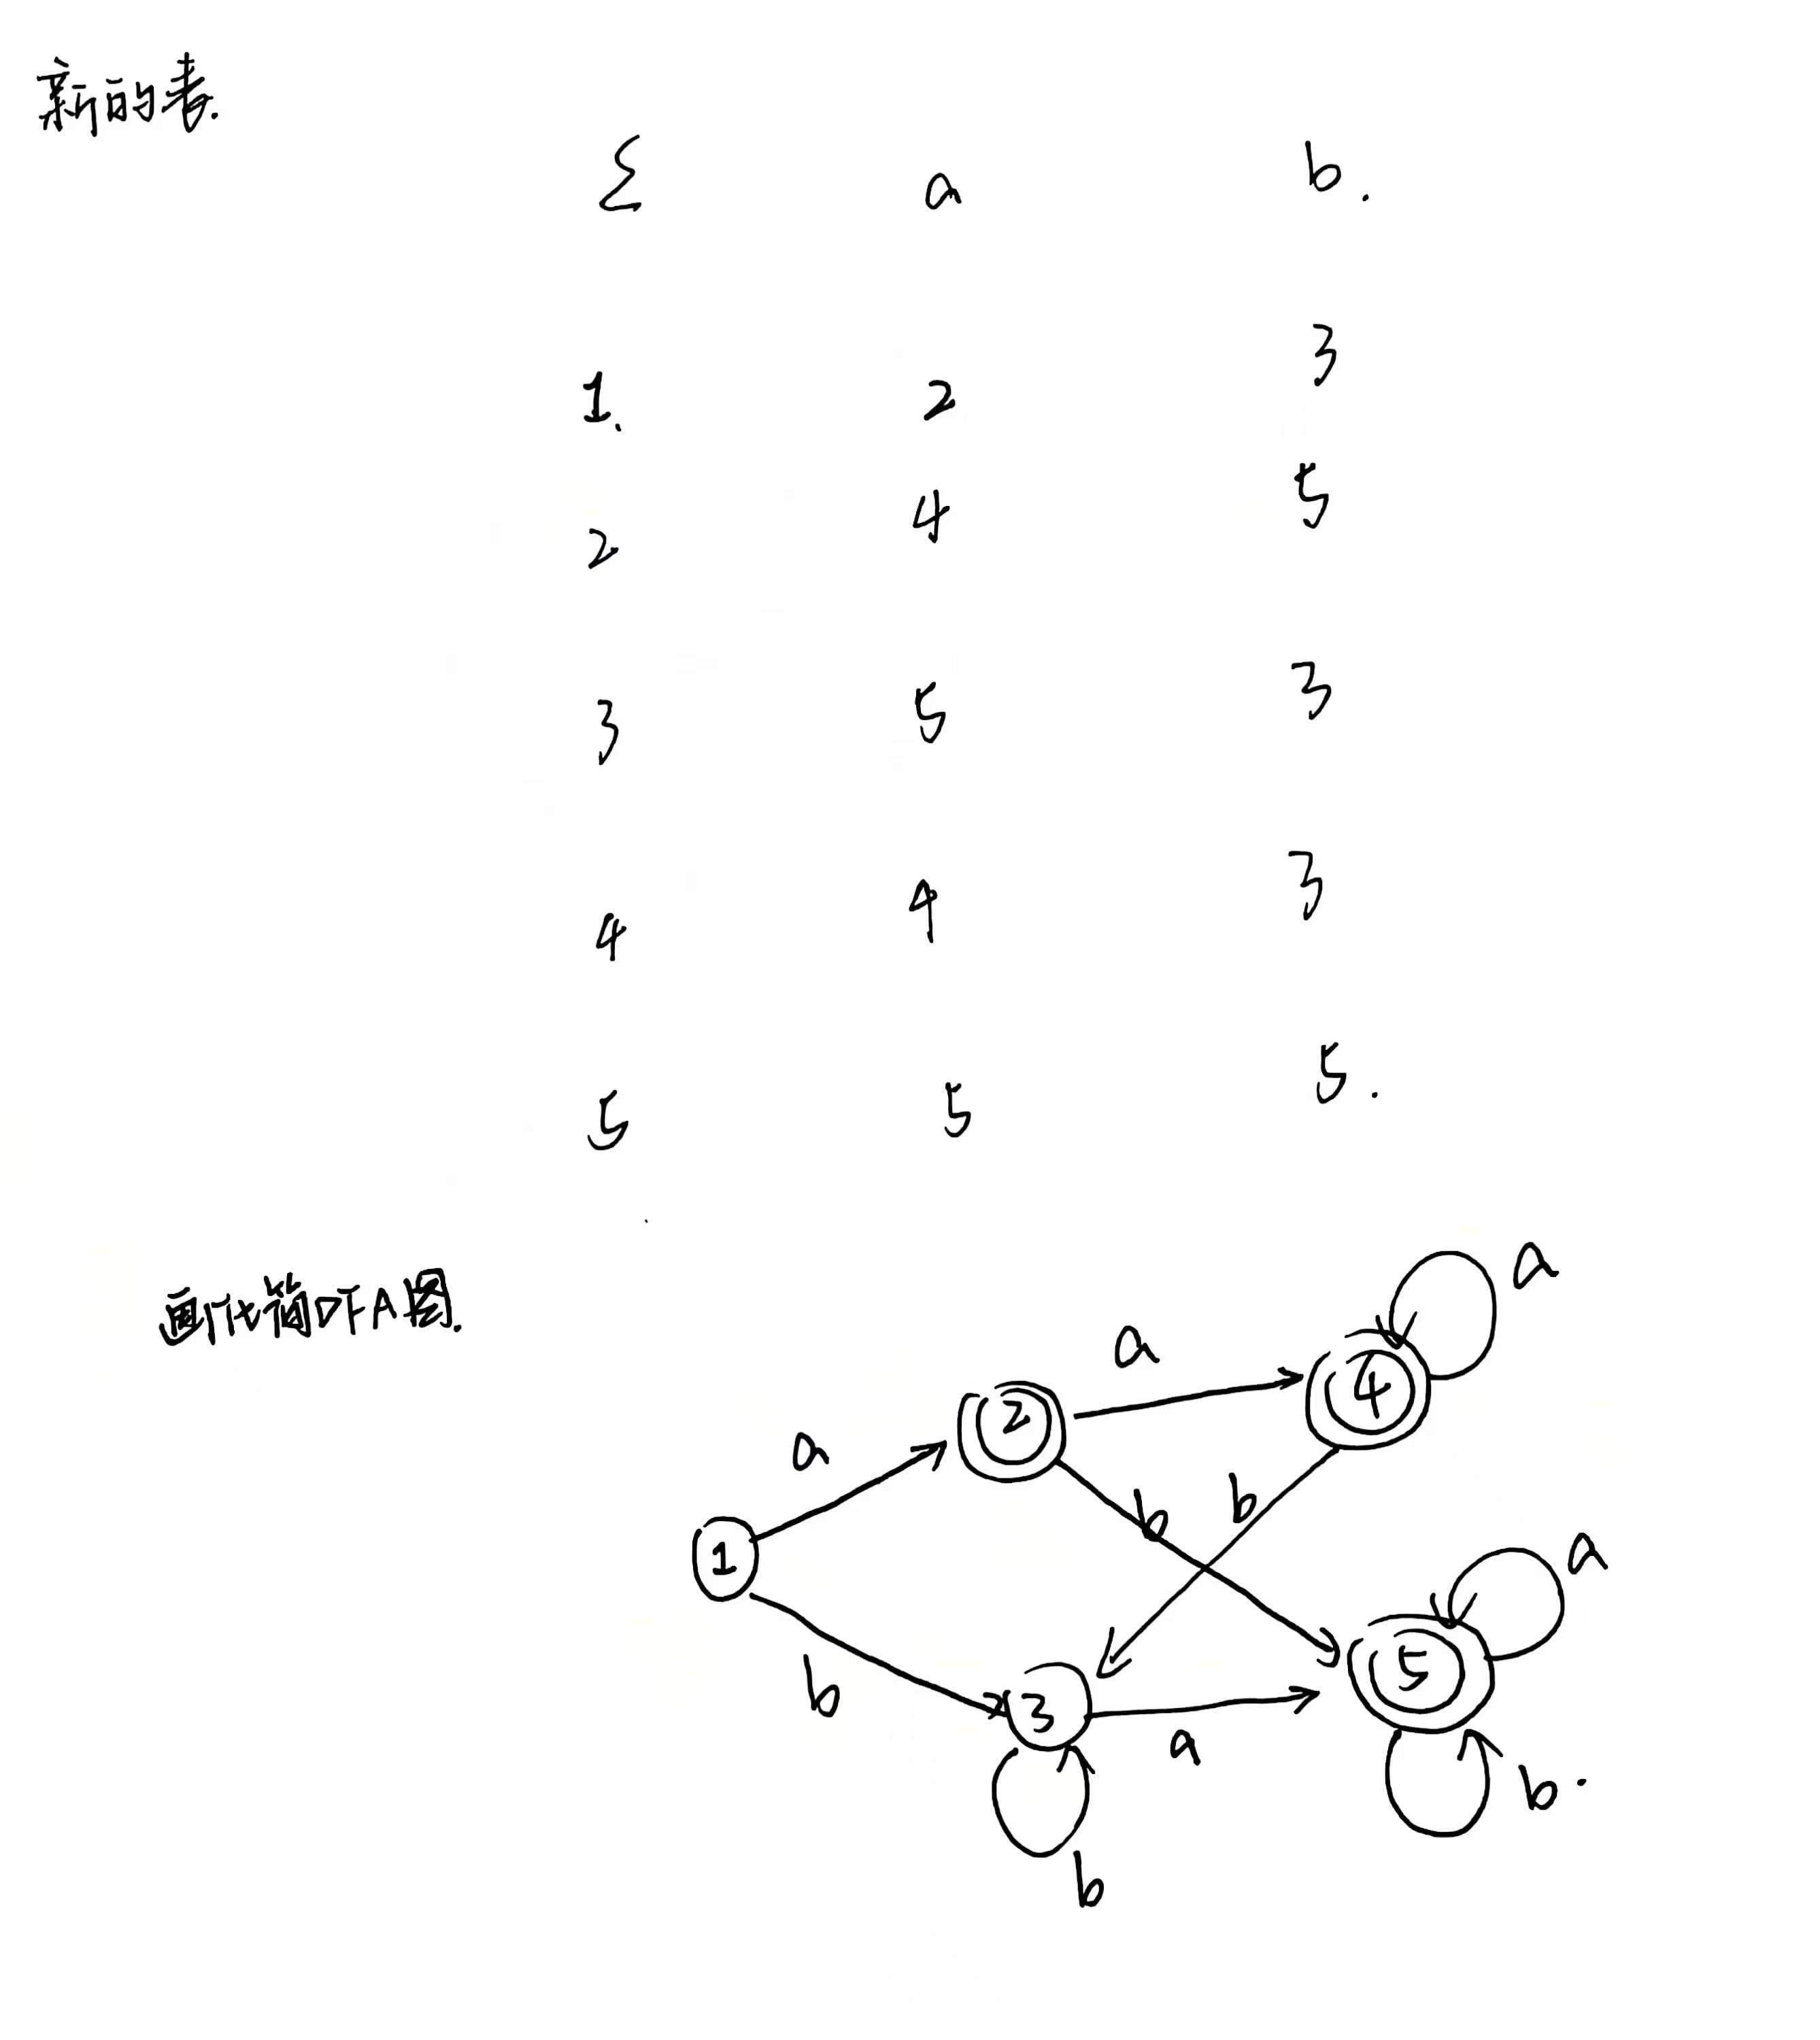 新的表.
Σ a b.
1. 2 3
2 4 5
3 5 3
4 4 3
5 5 5.
画化简DFA图.
a
a
a
2
4
a
b
b
1
a
5
b
3
a
b.
b